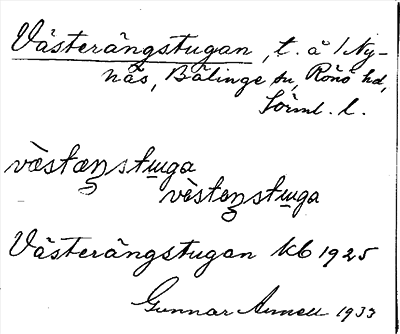 Västerängstugan, t. å 1 Ny-
näs, Bälinge sn, Rönö hd,
Sörml. l.
væ̀stæŋstɯga
vèsteŋstɯga
Västerängstugan kb 1925
Gunnar Armell 1933